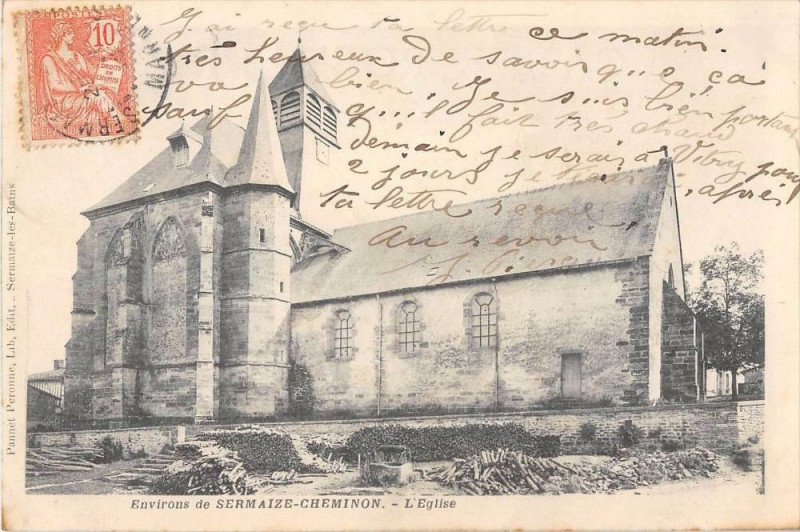 POSTES
10
DROITS DE L'HOMME
J'ai reçu ta lettre ce matin.
très heureux de savoir que ça
va bien. Je suis bien portant
sauf qu'il fait très chaud
demain je serai à Vitry pour
2 jours je t'écrirai après
ta lettre reçue
Au revoir
Pannet Peronne, Lib. Edit. - Sermaize-les-Bains
Environs de SERMAIZE-CHEMINON. - L'Eglise